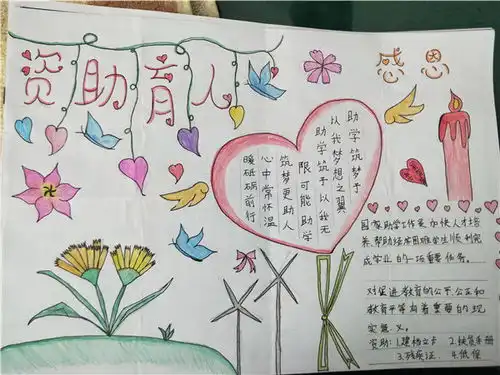 资助育人
感恩
助学筑梦予
以我梦想之翼
助学筑予以我无
限可能助学
筑梦更助人
心中常怀温
暖砥砺前行
国家助学工作是加快人才培
养,帮助经济困难学生顺利完
成学业的一项重要任务。
对促进教育的公平公正和
教育平等有着重要的现
实意义。
资助:1.建档立卡 2.扶贫手册
3.残疾证 4.低保